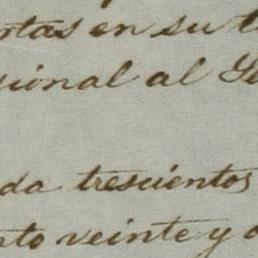 rtas en su t
sional al Se
da trescientos
nto veinte y o